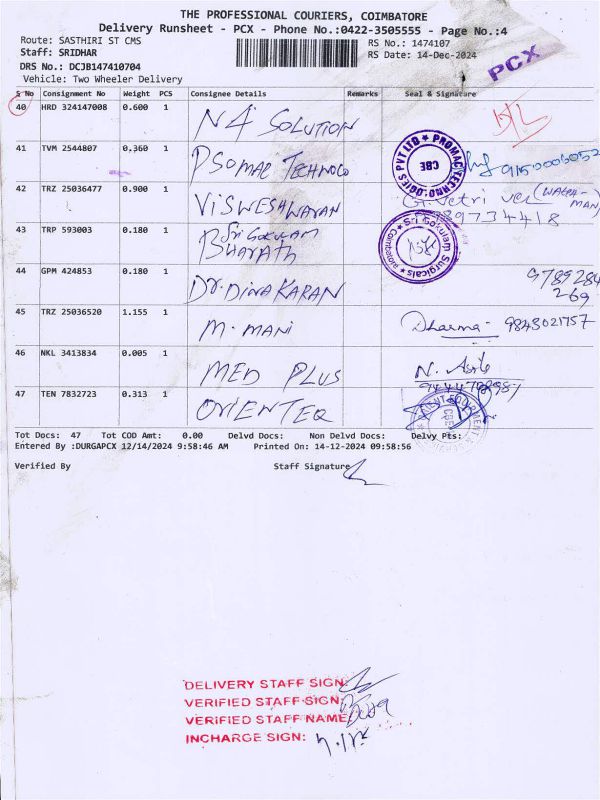 THE PROFESSIONAL COURIERS, COIMBATORE
Delivery Runsheet - PCX - Phone No.:0422-3505555 - Page No.:4
Route: SASTHIRI ST CMS RS No.: 1474107
Staff: SRIDHAR RS Date: 14-Dec-2024
DRS No.: DCJB147410704
Vehicle: Two Wheeler Delivery
PCX
S No Consignment No Weight PCS Consignee Details Remarks Seal & Signature
40 HRD 324147008 0.600 1 N4 SOLUTION
41 TVM 2544807 0.360 1 PROMAC TECHNOLOGIES PVT LTD CBE
42 TRZ 25036477 0.900 1 VISWESHWARAN
43 TRP 593003 0.180 1 Sri Gokulam BHARATH Sri Gokulam Surgicals Coimbatore
44 GPM 424853 0.180 1 Dr. DINAKARAN 9789284
269
45 TRZ 25036520 1.155 1 M. MANI Dharma 9843021757
46 NKL 3413834 0.005 1 MED PLUS
47 TEN 7832723 0.313 1 CBE
Tot Docs: 47 Tot COD Amt: 0.00 Delvd Docs: Non Delvd Docs: Delvy Pts:
Entered By :DURGAPCX 12/14/2024 9:58:46 AM Printed On: 14-12-2024 09:58:56
Verified By Staff Signature
DELIVERY STAFF SIGN:
VERIFIED STAFF SIGN:
VERIFIED STAFF NAME:
INCHARGE SIGN: